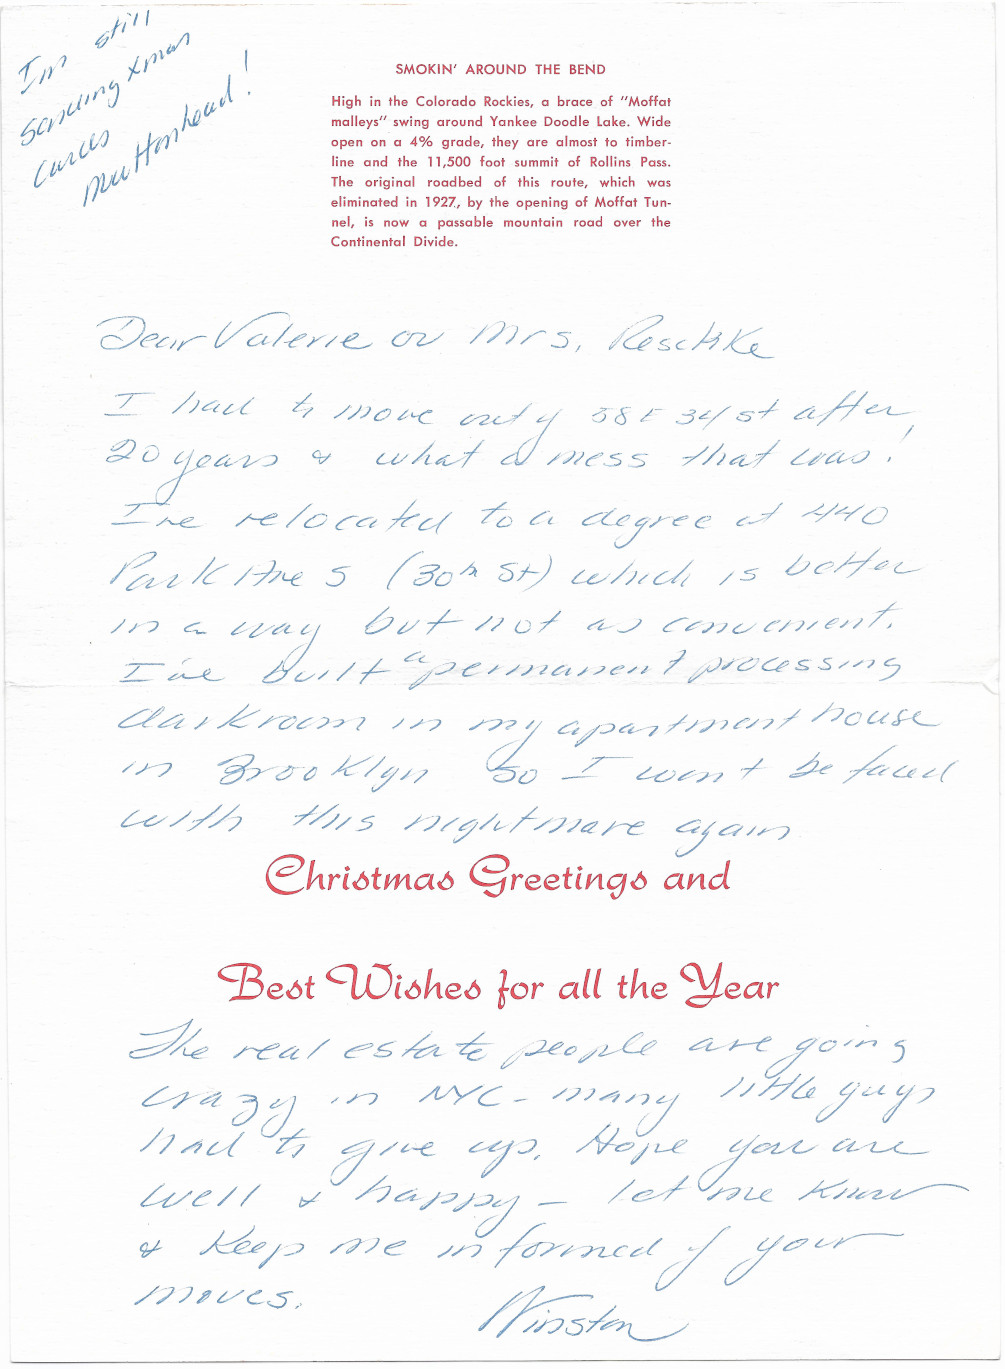 I'm still
sending Xmas
cards
Muttonhead!
SMOKIN' AROUND THE BEND
High in the Colorado Rockies, a brace of "Moffat
malleys" swing around Yankee Doodle Lake. Wide
open on a 4% grade, they are almost to timber-
line and the 11,500 foot summit of Rollins Pass.
The original roadbed of this route, which was
eliminated in 1927, by the opening of Moffat Tun-
nel, is now a passable mountain road over the
Continental Divide.
Dear Valerie or Mrs. Reschke
I had to move out of 38 E 34 st after
20 years & what a mess that was!
I've relocated to a degree at 440
Park Ave S (30th St) which is better
in a way but not as convenient.
I've built a permanent processing
darkroom in my apartment house
in Brooklyn so I won't be faced
with this nightmare again
Christmas Greetings and
Best Wishes for all the Year
The real estate people are going
crazy in NYC - many little guys
had to give up. Hope you are
well & happy - let me know
& keep me informed of your
moves.
Winston